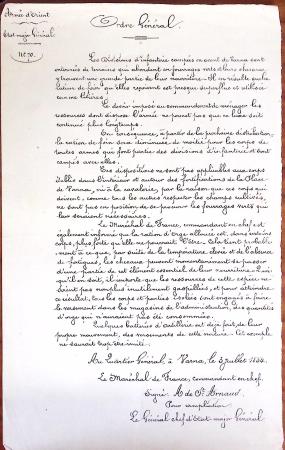 Armée d'Orient
Etat major Général
N° 70
Ordre Général.
Les Divisions d'infanterie campées en avant de Varna sont
entourées de terrains qui abondent en fourrages verts et leurs chevaux
y trouvent une grande partie de leur nourriture. Il en résulte que la
ration de foin qu'elles reçoivent est presque superflue et utilisée
comme litière.
Le devoir imposé au commandement de ménager les
ressources dont dispose l'armée ne permet pas que ce luxe soit
continué plus longtemps.
En conséquence, à partir de la prochaine distribution,
la ration de foin sera diminuée de moitié pour les corps de
toutes armes qui font partie des divisions d'infanterie et sont
campés avec elles.
Ces dispositions ne sont pas applicables aux corps
établis dans l'intérieur et autour des fortifications de la Place
de Varna, ni à la cavalerie, par la raison que ces corps qui
doivent, comme tous les autres respecter les champs cultivés,
ne sont pas en position de se procurer les fourrages verts qui
leur seraient nécessaires.
Le Maréchal de France, commandant en chef, est
également informé que la ration d'orge allouée est, dans certains
corps, plus forte qu'elle ne pourrait l'être. Cela tient probable-
ment à ce que, par suite de la température élevée et de l'absence
de fatigues, les chevaux peuvent momentanément se passer
d'une partie de cet élément essentiel de leur nourriture. Quoi
qu'il en soit, il importe que les ressources de cette espèce ne
soient pas non plus inutilement gaspillées, et pour atteindre
ce résultat, tous les corps et parties isolées sont engagés à faire
le versement dans les magasins de l'administration, des quantités
d'orge qui n'auraient pas été consommées.
Quelques batteries d'artillerie ont déjà fait, de leur
propre mouvement, des versements de cette nature. Cet exemple
ne saurait trop être imité.
Au Quartier Général, à Varna, le 5 juillet 1854.
Le Maréchal de France, commandant en chef,
Signé: A. de St Arnaud.
Pour ampliation
Le Général chef d'Etat-major Général